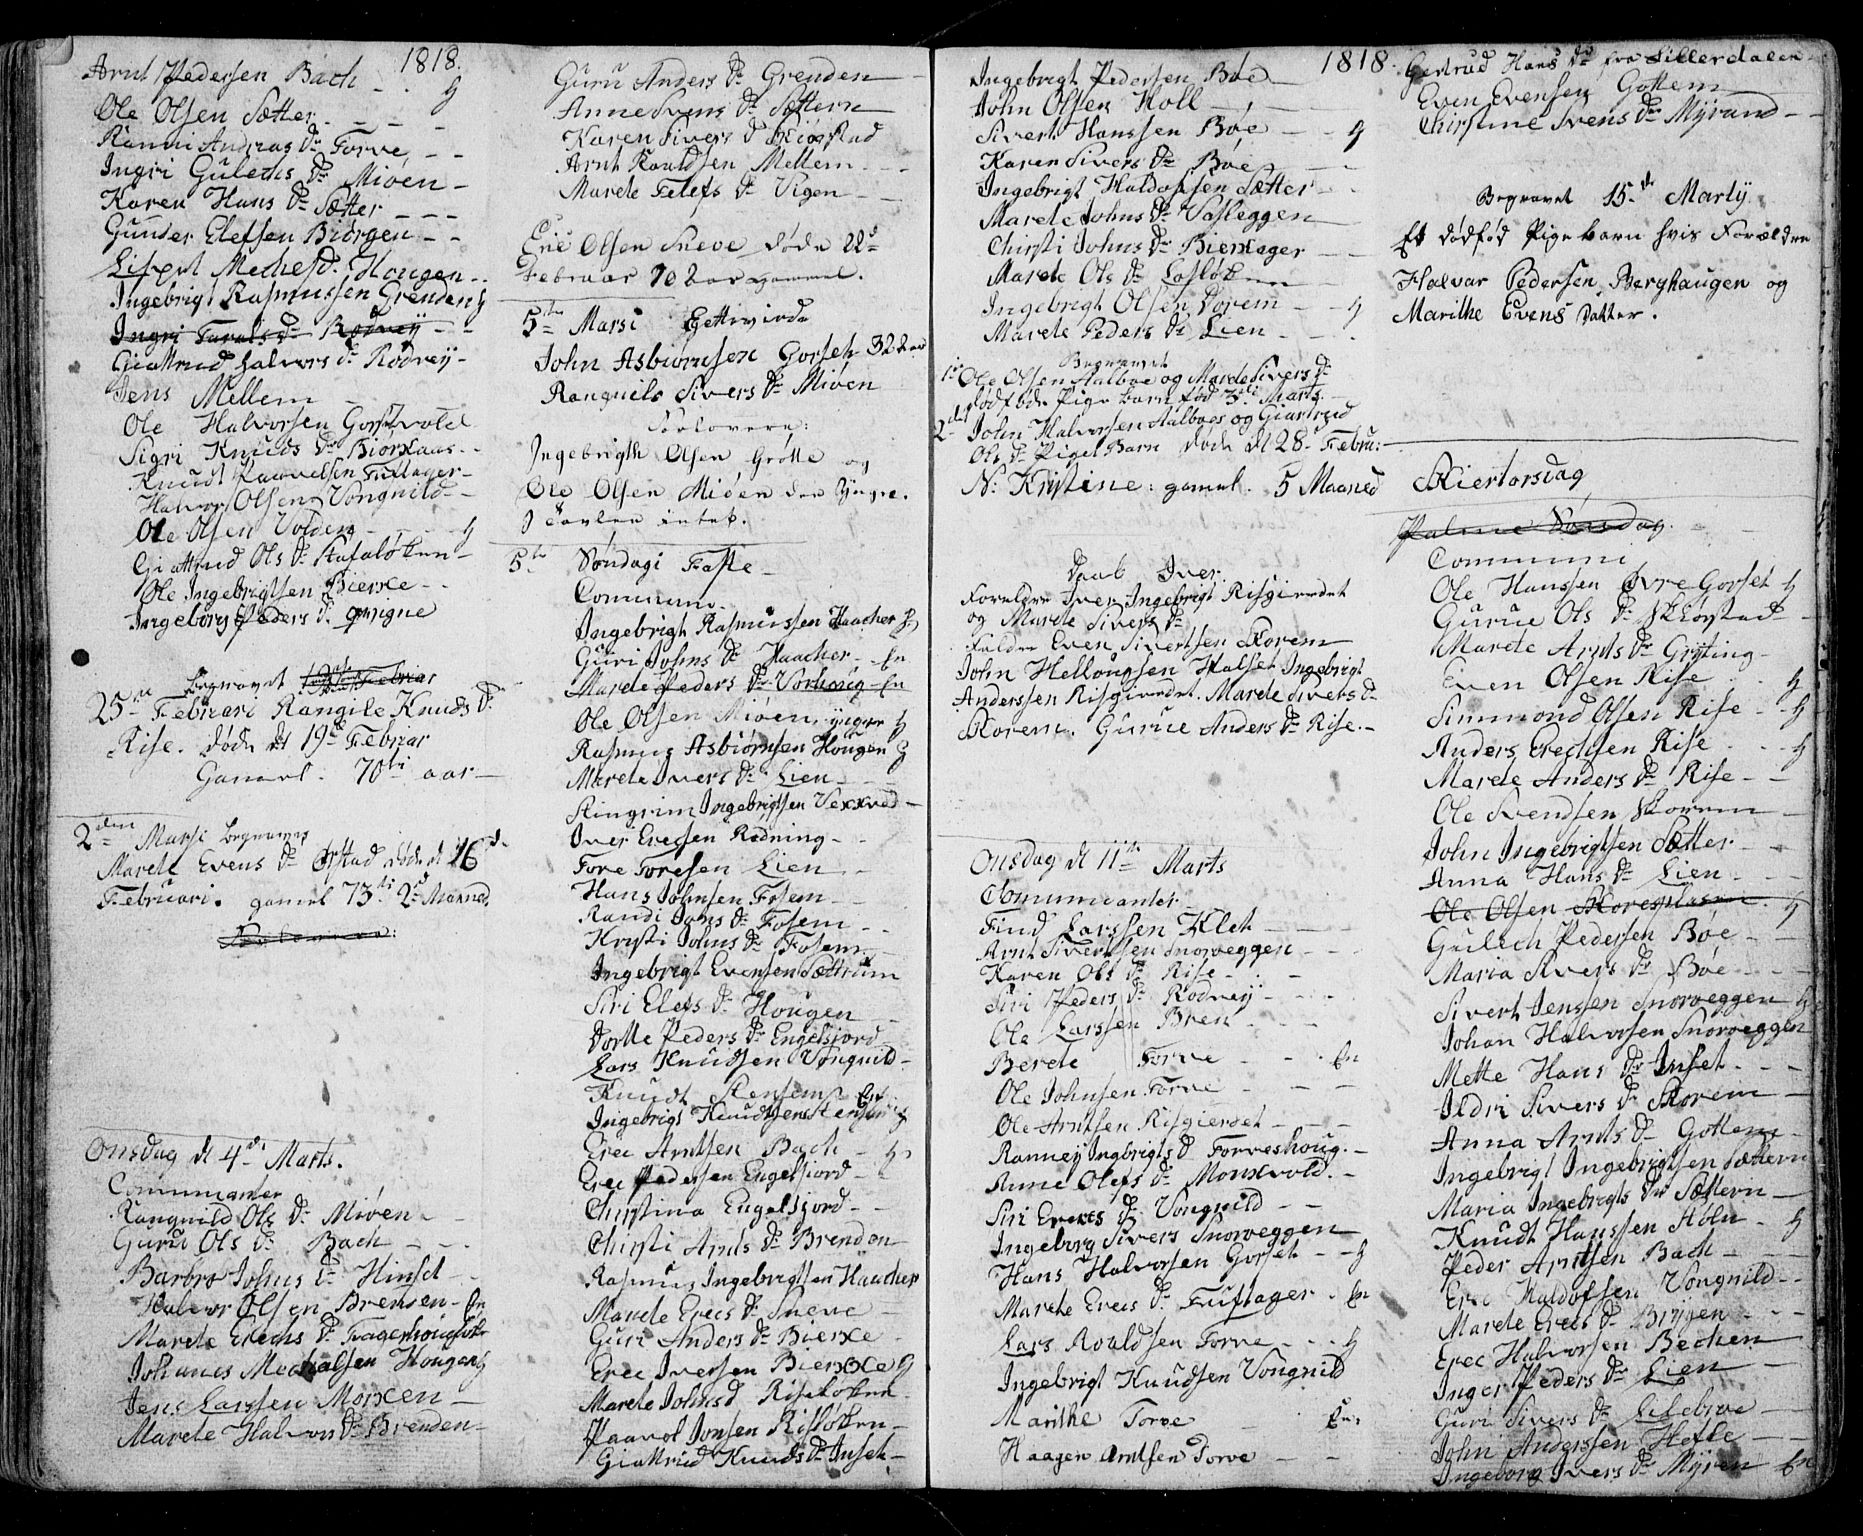 1818.
Arnt Pedersen Bach - . g
Ole Olsen Sætter - - -
Ranni Andras Dr Torve - -
Ingri Gulechs Dr Miøen -
Karen Hans Dr Sætter - - -
Gunder Elefsen Biørgen - -
Lispet Mechels D. Hougen - .
Ingebrigt Rasmussen Grenden g
Ingri Taralsdr Rodvey - -
Giertrud Halvors Dr Rodvey -
Jens Mellem
Ole Halvorsen Gorsetvold
Sigri Knuds Dr Biørkaas - -
Knudt Paavelsen Fustager -
Halvor Olsen Vongnild - -
Ole Olsen Volden - - - g
Giertrud Ols Dr Stafsløkken -
Ole Ingebrigtsen Bierke - -
Ingeborg Peders D.
Begravet
25de Februari Rangile Knuds Dr
Rise. døde d 19de Februar
Gamel. 70ti aar -
2den Marsi begraves
Marete Evens Dr Ørstad døde d 16d.
Februari. gamel 73ti 2d Maaned.
Onsdag d 4de Marts.
Communicanter
Rangnild Ols Dr Miøen - -
Guru Ols Dr Bach - - -
Barbro Johns Dr Hinset - -
Halvor Olsen Brensen - En
Marete Erechs Dr
Johanes Mechalsen Hougen g
Jens Larssen Morken -
Marete Halvors Dr Brenden -
Guru Anders Dr Grenden -
Anne Svens Dr Sættern
Karen Sivers D Skiørstad
Arnt Roaldsen Mellem - - -
Marete Telefs Dr Vigen - -
Eric Olsen Sneve døde 22d
Februar 70 aar gammel.
5te Marsi Egtteviede
John Asbiørnsen Gorset 32 aar
Rangnild Sivers Dr Miøen
Forlovere:
Ingebrigth Olsen Grøtte og
Ole Olsen Miøen den Yngre.
I Tavlen intet.
5te Søndag i Faste -
Communic.
Ingebrigt Rasmussen Haacher g
Guri Johns Dr Haacher - En
Marete Peders Dr Vorhoug - En
Ole Olsen Miøen, yngre g
Rasmus Asbiørnsen Hougen g
Marete Ivers Dr Lien - -
Stingrim Ingebrigtsen Vekkved -
Iver Erecsen Rodning - -
Tore Toresen Lien - -
Hans Johnsen Fosem - -
Randi Jons Dr Fosem - -
Kristi Johns Dr Fosem -
Ingebrigt Evensen Sættrum
Siri Elefs Dr Hougen
Dortte Peders Dr Engelsjord
Lars Knudsen Vongnild -
Knudt Stensem En
Ingebrigt Knudtsen Stensem g
Erec Arntsen Bach - g
Erec Pedersen Engelsjord - -
Christina Engelsjord - -
Chirsti Arnts Dr Brendøn
Rasmus Ingebrigtsen Haacher
Marete Erecs Dr Sneve -
Guri Anders Dr Bierke
Erec Iversen Bierkke g
Marete Johns D Riseløken
Paavol Jonsen Risløken -
Giertrud Knuds Dr Inset -
1818.
Ingebrigt Pedersen Bøe
John Olsen Holl - - -
Sivert Hanssen Bøe - - g
Karen Sivers Dr Bøe - -
Ingebrigt Haldorsen Sætter -
Marete Johns Dr Vasleggen
Chirsti Johns Dr Bierkager - -
Marete Ols Dr
Ingebrigt Olsen Dorem - - g
Marete Peders Dr Lien - - .
Begravet
1te Ole Olsen Aalboe og Marete Sivers Dr
Dødfødt Pige barn fød 3de Marts.
2det John Halvorsen Aalboes og Giertrud
Ols Dr Pige Barn døde d 28. Febru:
N: Kristine: gamel. 5 Maaned
Daab Iver.
Foreldre Iver Ingebrigt Risgierdet
og Marete Sivers Dr
Faddre Even Sivertsen Skorem
John Hellougsen Halset Ingebrigt
Anderssen Risgierdet. Marete Sivers Dr
Skorem. Gurue Anders Dr Rise. -
Onsdag d 11te Marts
Communicanter
Find Larssen Klet - - -
Arnt Sivertsen Snorveggen - -
Karen Ols Dr Rise - . -
Siri Peders Dr Rodvey - - -
Ole Larssen Bren - - -
Berete Torve - - . En
Ole Johnsen Torve - - -
Ole Arntsen Risgierdet - - -
Ranney Ingbrigts D Torveshoug. -
Anne Olefs Dr Monkvold. -
Siri Erecs Dr Vongnild - -
Ingeborg Sivers Snorveggen
Hans Halvorsen Gorset - - g
Marete Erecs Dr Fustager . En
Lars Roaldsen Torve - - - g
Ingebrigt Knudsen Vongnild
Marithe Torve En:
Haagen Arntsen Torve - -
Gertrud Hans Dr fra Lillerdalen -
Even Evensen Gottem
Chirstine Svens Dr Myrand - -
Begravet 15de Martij
Et dødfød Pige barn hvis Forældre
Halvar Pedersen Berghaugen og
Marithe Evens Datter.
Skiertorsdag
Palme Sønsdag.
Communic
Ole Hanssen Øvre Gorset g
Gurue Ols Dr Skiørstad -
Marete Arnts Dr Gryting -
Even Olsen Rise . - g
Simmond Olsen Rise - - g
Anders Erechsen Rise . - - g
Marete Anders Dr Rise - -
Ole Svendsen Skorem - -
John Ingebrigtsen Sætter - -
Anna Hans Dr Lien - - -
Ole Olsen g
Gulech Pedersen Bøe - -
Maria Sivers Dr Bøe - - -
Sivert Jenssen Snorveggen g
Johan Halvorsen Snorveggen
Mette Hans Dr Inset. - -
Ildri Sivers Dr Skorem - -
Anna Arnts Dr Gottem -
Ingebrigt Ingebrigtsen Sættern
Maria Ingebrigts Dr Sættern -
Knudt Hanssen Støln - g
Peder Arntsen Bach - - -
Erec Haldorsen Vongnild - -
Marete Erecs Dr Bryggen - - -
Erec Halvorsen Bechen
Inger Peders Dr Lien -
Guri Sivers Dr Lilebroe - -
John Anderssen Hefte - -
Ingeborg Ivers Dr Myren - En